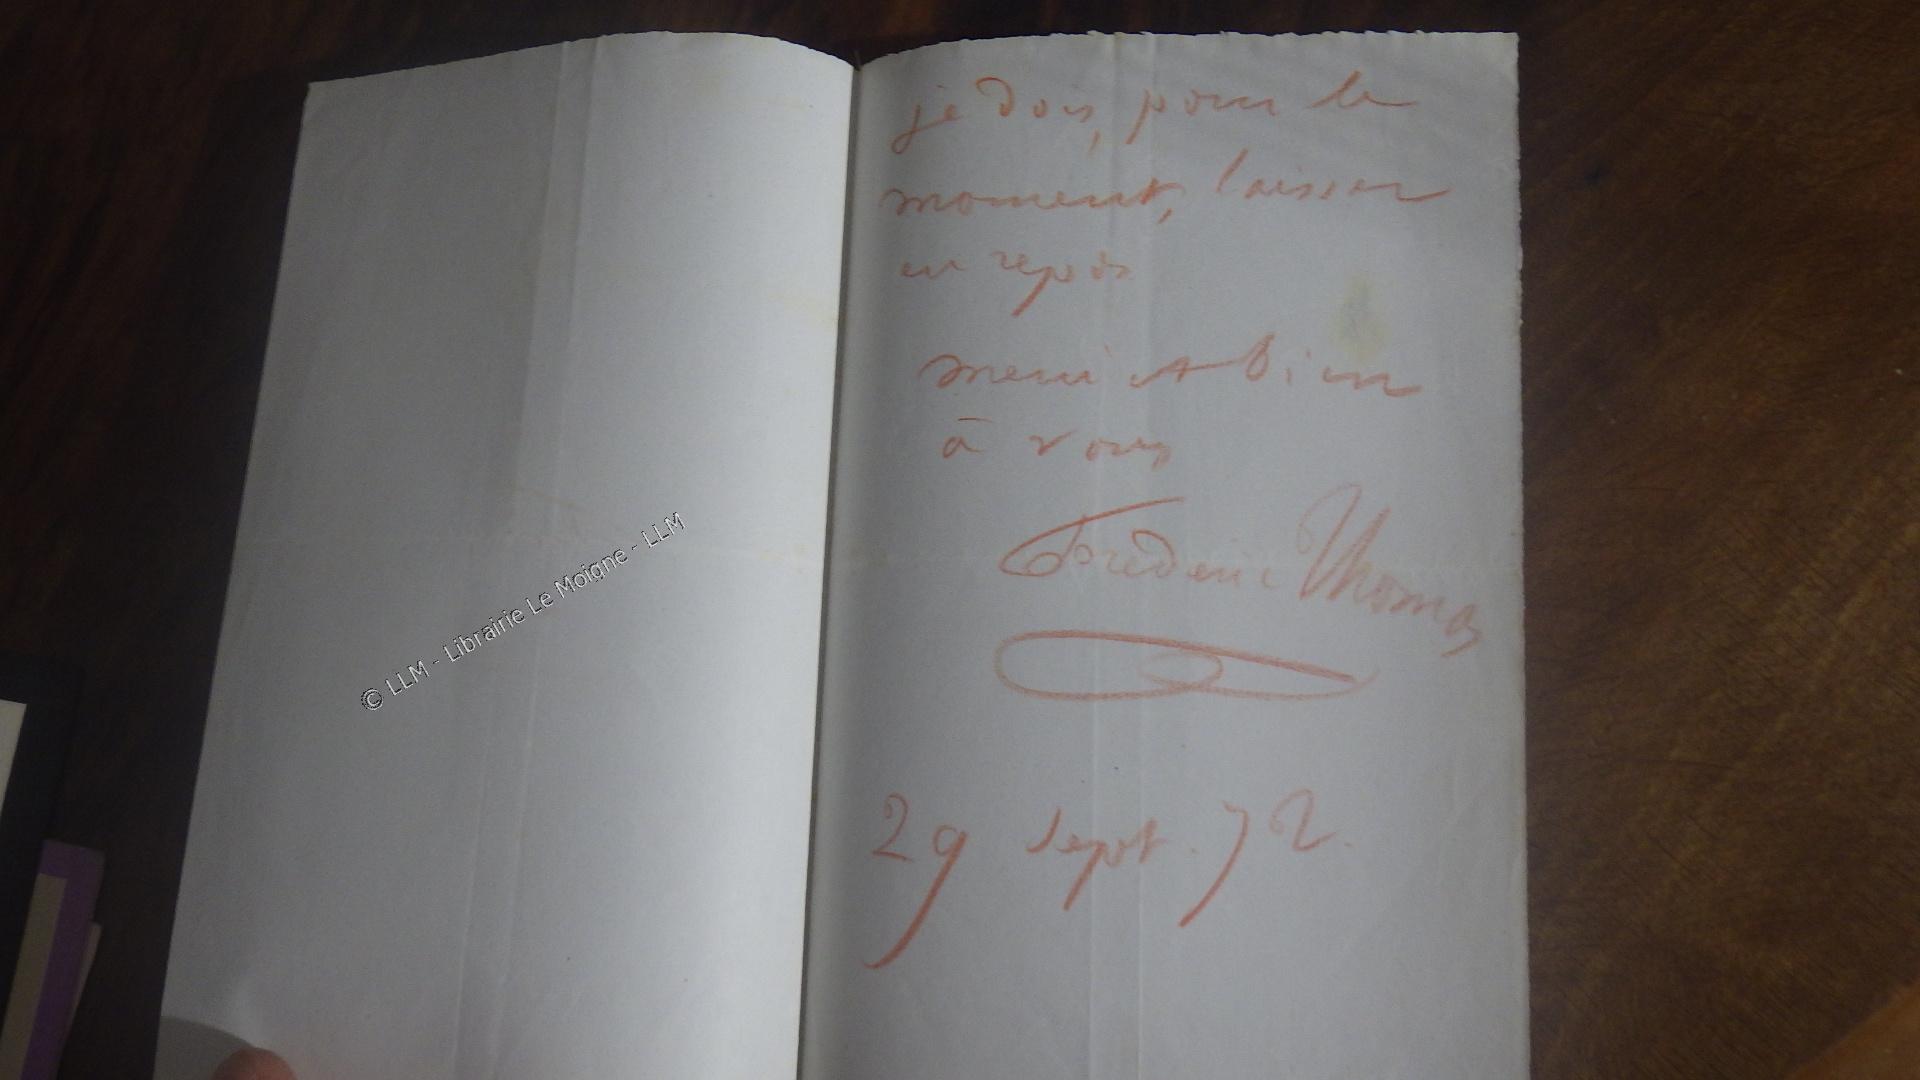 je dois, pour le
moment, laisser
en repos
merci et bien
à vous
Frédéric Thomas
29 sept. 72.
© LLM - Librairie Le Moigne - LLM